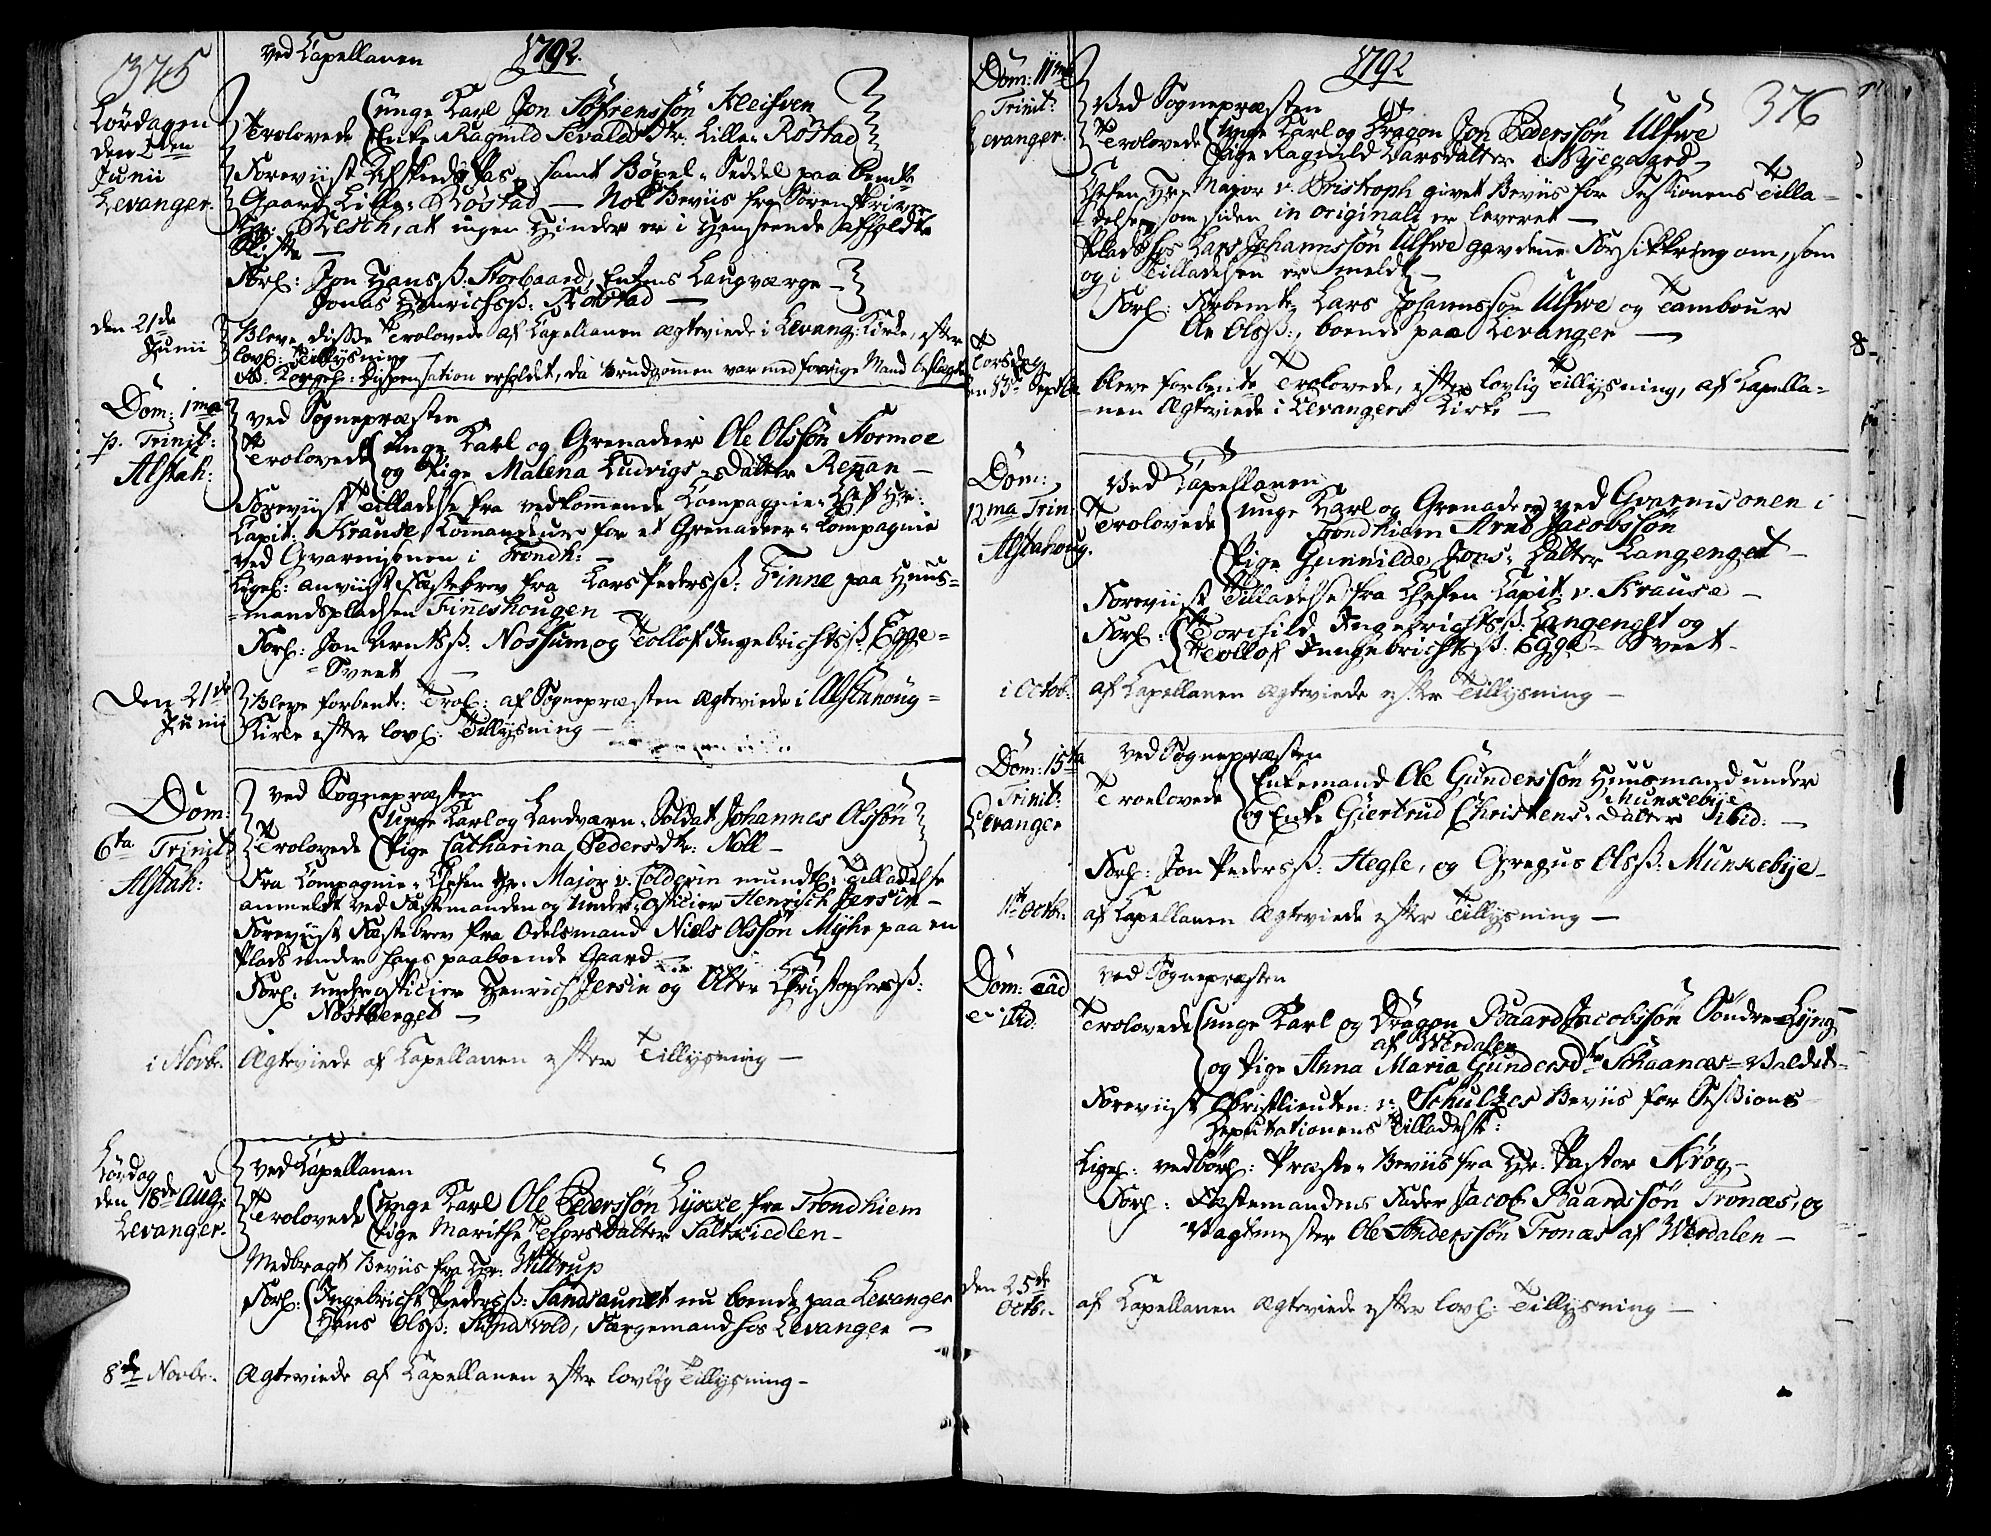 375
ved Capellanen 1792.
Lørdagen
den 2den
Junii
Levanger.
Trolovede unge Karl Jon Søfrenssøn Kleifven
Enke Ragnild Sevaldsdtr: Lille-Røstad
Foreviist Afskeds Pas, samt Bøxel-Seddel paa bemte
Gaard Lille-Røstad — Nok Beviis fra Sorenskriver
Hr: Resch, at ingen Hinder er i Henseende afholdte
Skifte —
Forl: Jon Hansß: Storbaard, Enkens Laugværge —
Jonas Henrichsß: Røstad —
den 21de
Junii
Bleve disse Trolovede af Capellanen Ægteviede i Levang: Kirke, efter
lovl: Tillysning —
NB. Kongel: Dispensation erholdet, da Brudgommen var med forrige Mand beslægtet
Dom: 1ma
p. Trinit:
Alstah:
ved Sognepræsten
Trolovede unge Karl og Grenadeer Ole Olssøn Stormoe
og Pige Malena Ludvigs-Datter Rennan —
Foreviist Tilladelse fra vedkommende Compagnie-Chef Hr:
Capit: Krause, Commandeur for et Grenadeer-Compagnie
ved Gvarnisonen i Trondh: —
Ligel: anviist Fæstebrev fra Lars Pedersß: Finne paa Huus-
-mandspladsen Finneshougen —
Forl: Jon Arntsß: Nossum og Tollof Ingebrichtsß: Egge-
-Sveet —
Den 21de
Junii
Bleve forbente: Trol: af Sognepræsten Ægteviede i Alstahoug-
Kirke efter lovl: Tillysning —
Dom:
6ta Trinit:
Alstah:
ved Sognepræsten
Trolovede unge Karl og Landværn-Soldat Johannes Olssøn
Pige Catharina Pedersdtr: Noll —
Fra Compagnie-Chefen Hr: Major v: Colderin mundtl: Tilladelse
anmeldt ved Fæstemanden og Under-Officier Henrich Jersin —
Foreviist Fæstebrev fra Odelsmand Niels Olssøn Myhr paa en
Plads under hans paaboende Gaard —
Forl: underofficier Henrich Jersin og Otter Christophersß:
Nøstberget —
i Novbr: Ægteviede af Capellanen efter Tillysning —
Lørdag
den 18de Aug:
Levanger.
ved Capellanen
Trolovede unge Karl Ole Pederssøn Lykke fra Trondhiem
Pige Marithe Thorsdatter Saltkiedlen —
Medbragt Beviis fra Hr: Wittrup
Forl: Ingebricht Pedersß: Sandsaunet nu boende paa Levanger
Hans Olsß: Strandvold, Færgemand hos Levanger —
8de Novbr: Ægteviede af Capellanen efter lovlig Tillysning —
1792
376
Dom: 11ma
Trinit:
Levanger.
Ved Sognepræsten
Trolovede unge Karl og Dragon Jon Pederssøn Ulfwe
Pige Ragnild Larsdatter Nyjegaard —
Chefen Hr: Major v. Bristroph givet Beviis for Sessionens Tilla-
-delse, som siden in originali er leveret —
Plads hos Lars Johannssøn Ulfwe gav denne Forsikkring om, som
og i Tilladelsen er meldt —
Forl: Forbemte Lars Johannssøn Ulfwe og Tambour
Ole Olsß:, boende paa Levanger —
Torsdag
den 13de Septbr:
bleve forbente Trolovede, efter lovlig Tillysning, af Capella-
-nen Ægteviede i Levangers Kirke —
Dom:
12ma Trin:
Alstahoug.
Ved Capellanen
Trolovede unge Karl og Grenadeer ved Gvarnisonen i
Trondhiem Arnt Jacobssøn
Pige Gunnilde Jons-Datter Langenget —
Foreviist Tilladelse fra Chefen Capit: v. Krause —
Forl: Torchild Ingebrichtsß: Langenget og
Tollof Inngebrichtsß: Egge-Sveet —
i Octob: af Capellanen Ægteviede efter Tillysning —
Dom: 15ta
Trinit:
Levanger
ved Sognepræsten
Troelovede Enkemand Ole Gunderssøn Huusmand under
Munkebije
og Enke Giertrud Christens-Datter ibid: —
Forl: Jon Pedersß: Hegle, og Gregus Olsß: Munkebije —
11te Octbr: af Capellanen Ægteviede efter Tillysning —
Dom: ead
ibid:
ved Sognepræsten
Trolovede unge Karl og Dragon Baard Jacobssøn Søndre-Lyng
af Werdalen
og Pige Anna Maria Gundersdtr Schaanæs-Valdet —
Foreviist Christlieuten: v: Schultzes Beviis for Seßions
Deputationens Tilladelse:
Ligel: vedbørl: Præste-Beviis fra Hr: Pastor Krog —
Forl: Fæstemandens Fader Jacob Baardssøn Tronæs, og
Vagtmester Ole Anderssøn Tronæs af Werdalen —
den 25de
Octbr: af Capellanen Ægteviede efter lovl: Tillysning —